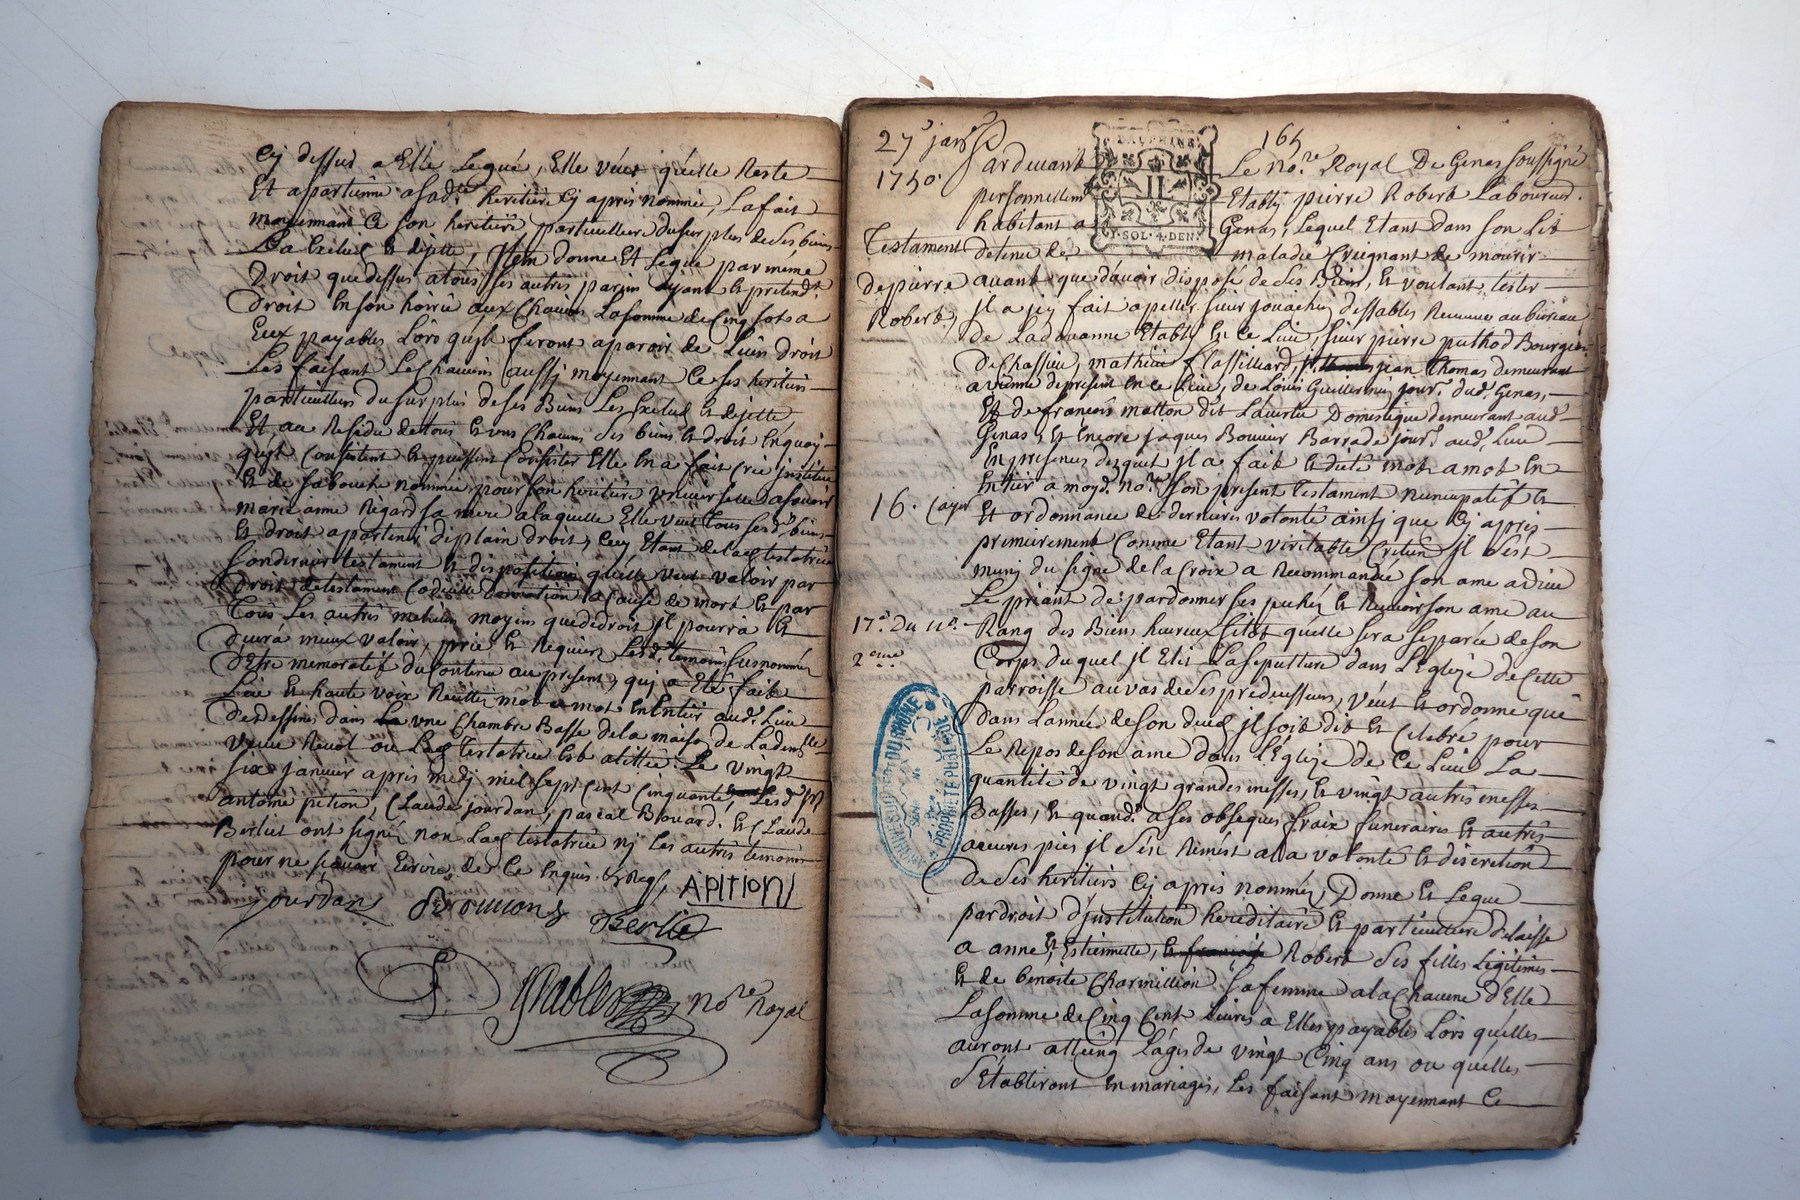 Cy dessus a Elle Legué, Elle veut quelle Reste
Et apartienne asad.e heritiere Cy apres nommée, La fait
moyennant Ce son heritiere particulliere Du surplus de ses biens
La Exclud et dejette, Item donne Et Legue par même
Droit que dessus a tous ses autres parens ayant et pretend.t
Droit En son hoirie aux Chacuns La somme de Cinq sols a
Eux payables Lors quils feront aparoir de Leurs Droit
Les faisant Les Chacuns aussy moyennant Ce ses heritiers
particulliers du surplus de ses Biens Les Exclud et dejette
Et au Residu de tous et uns Chacuns ses biens et droit En quoy
quils Consistent et puissent Consister Elle En a fait Crée Institué
et de sa bouche nommée pour son heritiere universelle a savoir
marie anne Regard sa mere a laquelle Elle veut tous sesd. biens
et droit apartenir de plain droit, Cecy Etant de lad. testatrice
Son dernier testament et disposition quelle veut valoir par
Droit de testament Codicille Donnation a Cause de mort et par
tous Les autres meilleurs moyens que de droit jl pourra et
Devra mieux valoir, prié et Requier Lesd. temoins susnommés
D'Etre memoratif du Contenu au present, quj a Eté fait
Leu et haute voix Recitté mot a mot En Entier aud. Lieu
Desdessines dans une Chambre Basse de la maison de Lademlle
veuve Revol ou Lad. testatrice Est alittée Le vingt
six janvier apres medj mil sept Cent Cinquante, Lesd. sr
antoine pition, Claude jourdan, pascal Brouard, et Claude
Berliet ont signés non Lad. testatrice nj Les autres temoins
pour ne sçavoir Ecrire de Ce Enquis & Req.
APITION
jourdan
Berlie
Desvables nore Royal
165
27e janer
1750.
Pardevant Le no.re Royal De Genas soussigné
personnellemt Etably pierre Robert Laboureur
habitant a Genas, Lequel Etant dans son Lit
DALPHINE
II
SOL. 4. DEN.
Testament
de pierre
Robert
detenu de maladie Creignant de mourir
avant que d'avoir disposé de ses Biens, et voulant tester
jl a jcy fait apeller sieur jouachin dessables Receveur au bureau
de La douanne Etably En Ce Lieu, sieur pierre puthod Bourgeois
de Chassieu, mathieu flassilliard, jean Thomas demeurant
a vienne de present En ce Lieu, de Louis Guillermin jour.r dud. Genas,
Et de francois matton dit Laviolette Domestique demeurant aud.
Genas, et Encore jaques Bouvier Barrade jour.r aud. Lieu
En presences desquels jl a fait et dicté mot a mot En
Entier a moyd. no.re son present testament nuncupatif et
16. Cayer
Et ordonnance de derniere volonté ainsj que Cy apres
premierement Comme Etant veritable Cretien jl s'est
munj du signe de la Croix a Recommandée son ame a dieu
Le priant de pardonner ses pechés et Recevoir son ame au
17.e Du 11.e
2eme
Rang des Biens heureux sitot qu'elle sera separée de son
Corps duquel jl Elit La sepulture dans L'Eglize de Cette
parroisse au vas de ses predecesseurs, veut et ordonne que
dans L'année de son deced jl soit dit et Celebré pour
Le Repos de son ame dans L'Eglize de Ce Lieu La
quantité de vingt grandes messes, et vingt autres messes
Basses, et quand. a ses obseques fraix funeraires et autres
œuvres pies jl s'en Remest a La volonté et discretion
de ses heritiers Cy apres nommés, Donne et Legue
par droit d'jnstitution hereditaire et particulliere delaisse
a anne, et Estiennette, et francoise Robert ses filles Legitimes
et de benoite Charmillion sa femme a la Chacune d'Elle
La somme de Cinq Cent Livres a Elles payables Lors quelles
auront atteint L'age de vingt Cinq ans ou quelles
s'Etabliront En mariages, Les faisant moyennant Ce
ARCHIVES DU RHONE
PROPRIETE PUBLIQUE